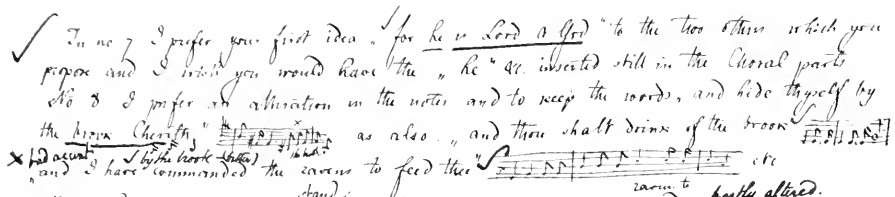 In no 7 I prefer your first idea „for he is Lord a God" to the two others which you
propose and I wish you would have the „he" &c. inserted still in the Choral parts
No 8 I prefer an alteration in the notes and to keep the words, and hide thyself by
the brook Cherith," as also „and thou shalt drink of the brook
× bad accent by the brook (better)
„and I have commanded the ravens to feed thee" etc
ravens to partly altered.